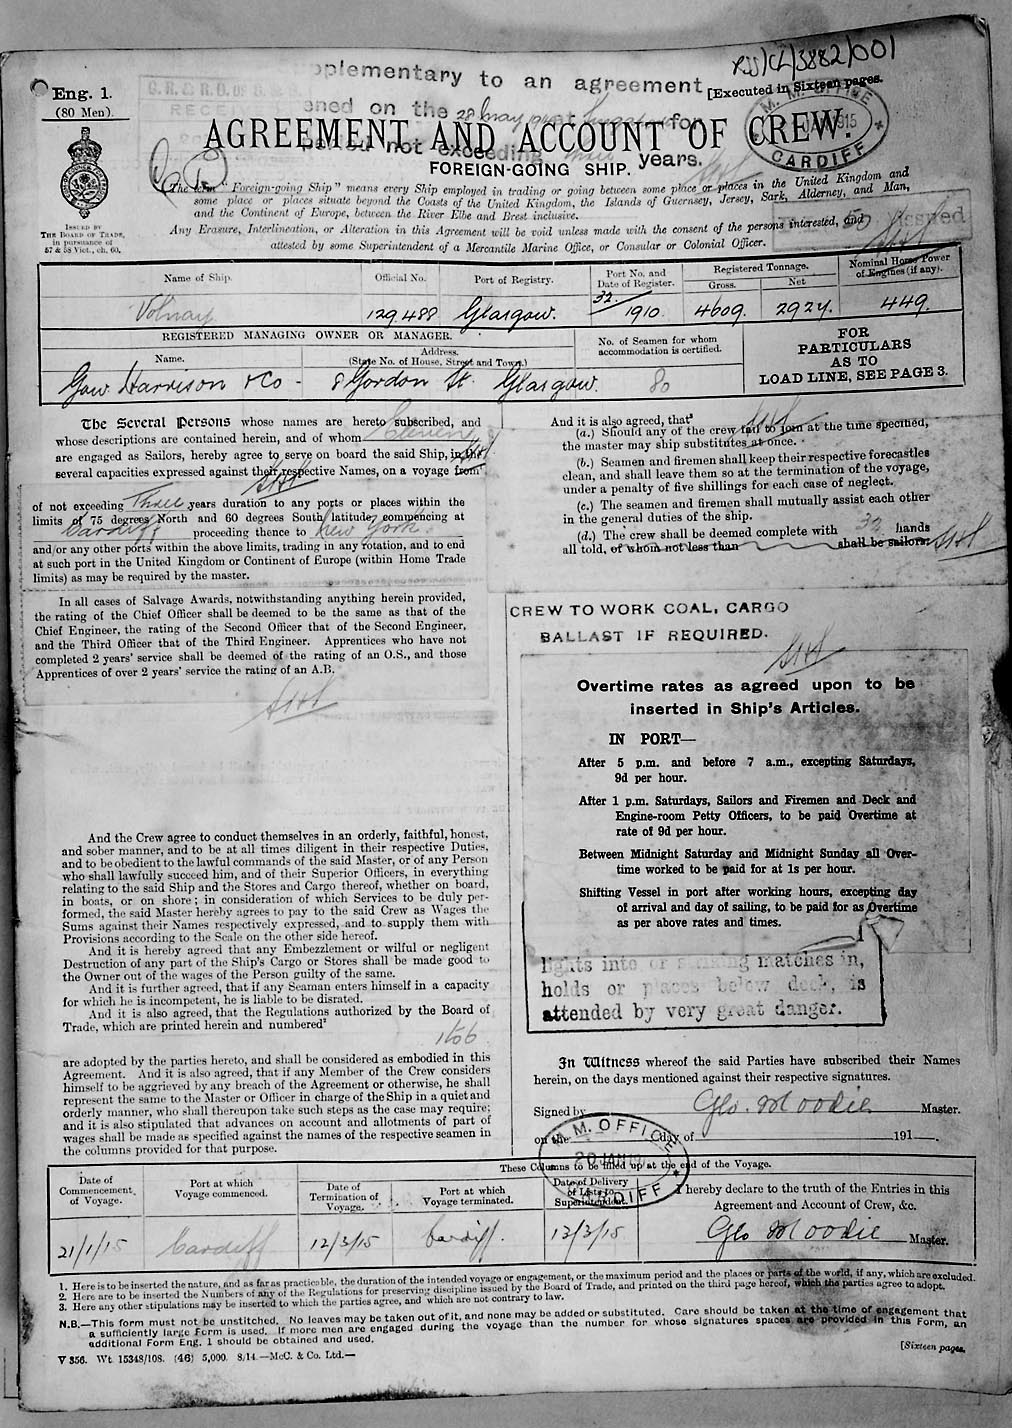 RSS/CL/3882/001
plementary to an agreement
Eng. 1.
(80 Men).
[Executed in Sixteen pages.
M. M. OFFICE
1915
CARDIFF
ened on the 28 May for
period not exceeding three years.
AGREEMENT AND ACCOUNT OF CREW.
FOREIGN-GOING SHIP.
ISSUED BY
THE BOARD OF TRADE,
in pursuance of
57 & 58 Vict., ch. 60.
The term "Foreign-going Ship" means every Ship employed in trading or going between some place or places in the United Kingdom and
some place or places situate beyond the Coasts of the United Kingdom, the Islands of Guernsey, Jersey, Sark, Alderney, and Man,
and the Continent of Europe, between the River Elbe and Brest inclusive.
Any Erasure, Interlineation, or Alteration in this Agreement will be void unless made with the consent of the persons interested, and
attested by some Superintendent of a Mercantile Marine Office, or Consular or Colonial Officer.
Issued
Name of Ship. Official No. Port of Registry. Port No. and Date of Register. Registered Tonnage. Gross. Net Nominal Horse Power of Engines (if any).
Volnay 129488 Glasgow. 32/1910. 4609. 2927. 449.
REGISTERED MANAGING OWNER OR MANAGER.
Name. Address. (State No. of House, Street and Town.)
No. of Seamen for whom accommodation is certified.
Gow Harrison & Co - 8 Gordon St. Glasgow. 80
FOR
PARTICULARS
AS TO
LOAD LINE, SEE PAGE 3.
The Several Persons whose names are hereto subscribed, and
whose descriptions are contained herein, and of whom
are engaged as Sailors, hereby agree to serve on board the said Ship, in the
several capacities expressed against their respective Names, on a voyage from
of not exceeding Three years duration to any ports or places within the
limits of 75 degrees North and 60 degrees South latitude, commencing at
Cardiff proceeding thence to New York
and/or any other ports within the above limits, trading in any rotation, and to end
at such port in the United Kingdom or Continent of Europe (within Home Trade
limits) as may be required by the master.
In all cases of Salvage Awards, notwithstanding anything herein provided,
the rating of the Chief Officer shall be deemed to be the same as that of the
Chief Engineer, the rating of the Second Officer that of the Second Engineer,
and the Third Officer that of the Third Engineer. Apprentices who have not
completed 2 years' service shall be deemed of the rating of an O.S., and those
Apprentices of over 2 years' service the rating of an A.B.
And the Crew agree to conduct themselves in an orderly, faithful, honest,
and sober manner, and to be at all times diligent in their respective Duties,
and to be obedient to the lawful commands of the said Master, or of any Person
who shall lawfully succeed him, and of their Superior Officers, in everything
relating to the said Ship and the Stores and Cargo thereof, whether on board,
in boats, or on shore; in consideration of which Services to be duly per-
formed, the said Master hereby agrees to pay to the said Crew as Wages the
Sums against their Names respectively expressed, and to supply them with
Provisions according to the Scale on the other side hereof.
And it is hereby agreed that any Embezzlement or wilful or negligent
Destruction of any part of the Ship's Cargo or Stores shall be made good to
the Owner out of the wages of the Person guilty of the same.
And it is further agreed, that if any Seaman enters himself in a capacity
for which he is incompetent, he is liable to be disrated.
And it is also agreed, that the Regulations authorized by the Board of
Trade, which are printed herein and numbered²
1 to 6
are adopted by the parties hereto, and shall be considered as embodied in this
Agreement. And it is also agreed, that if any Member of the Crew considers
himself to be aggrieved by any breach of the Agreement or otherwise, he shall
represent the same to the Master or Officer in charge of the Ship in a quiet and
orderly manner, who shall thereupon take such steps as the case may require;
and it is also stipulated that advances on account and allotments of part of
wages shall be made as specified against the names of the respective seamen in
the columns provided for that purpose.
And it is also agreed, that³
(a.) Should any of the crew fail to join at the time specified,
the master may ship substitutes at once.
(b.) Seamen and firemen shall keep their respective forecastles
clean, and shall leave them so at the termination of the voyage,
under a penalty of five shillings for each case of neglect.
(c.) The seamen and firemen shall mutually assist each other
in the general duties of the ship.
(d.) The crew shall be deemed complete with 32 hands
all told, of whom not less than shall be sailors.
CREW TO WORK COAL, CARGO
BALLAST IF REQUIRED.
Overtime rates as agreed upon to be
inserted in Ship's Articles.
IN PORT—
After 5 p.m. and before 7 a.m., excepting Saturdays,
9d per hour.
After 1 p.m. Saturdays, Sailors and Firemen and Deck and
Engine-room Petty Officers, to be paid Overtime at
rate of 9d per hour.
Between Midnight Saturday and Midnight Sunday all Over-
time worked to be paid for at 1s per hour.
Shifting Vessel in port after working hours, excepting day
of arrival and day of sailing, to be paid for as Overtime
as per above rates and times.
lights into or striking matches in,
holds or places below deck, is
attended by very great danger.
In Witness whereof the said Parties have subscribed their Names
herein, on the days mentioned against their respective signatures.
Signed by Geo. Moodie Master.
on the day of 191 .
M. M. OFFICE
20 JAN 191
CARDIFF
These Columns to be filled up at the end of the Voyage.
Date of Commencement of Voyage. Port at which Voyage commenced. Date of Termination of Voyage. Port at which Voyage terminated. Date of Delivery of Lists to Superintendent.
21/1/15 Cardiff 12/3/15 Cardiff. 12/3/15
I hereby declare to the truth of the Entries in this
Agreement and Account of Crew, &c.
Geo Moodie Master.
1. Here is to be inserted the nature, and as far as practicable, the duration of the intended voyage or engagement, or the maximum period and the places or parts of the world, if any, which are excluded.
2. Here are to be inserted the Numbers of any of the Regulations for preserving discipline issued by the Board of Trade, and printed on the third page hereof, which the parties agree to adopt.
3. Here any other stipulations may be inserted to which the parties agree, and which are not contrary to law.
N.B.—This form must not be unstitched. No leaves may be taken out of it, and none may be added or substituted. Care should be taken at the time of engagement that
a sufficiently large Form is used. If more men are engaged during the voyage than the number for whose signatures spaces are provided in this Form, an
additional Form Eng. 1 should be obtained and used.
[Sixteen pages.
V 356. Wt. 15348/108. (46) 5,000. 8/14.—McC. & Co. Ltd.—